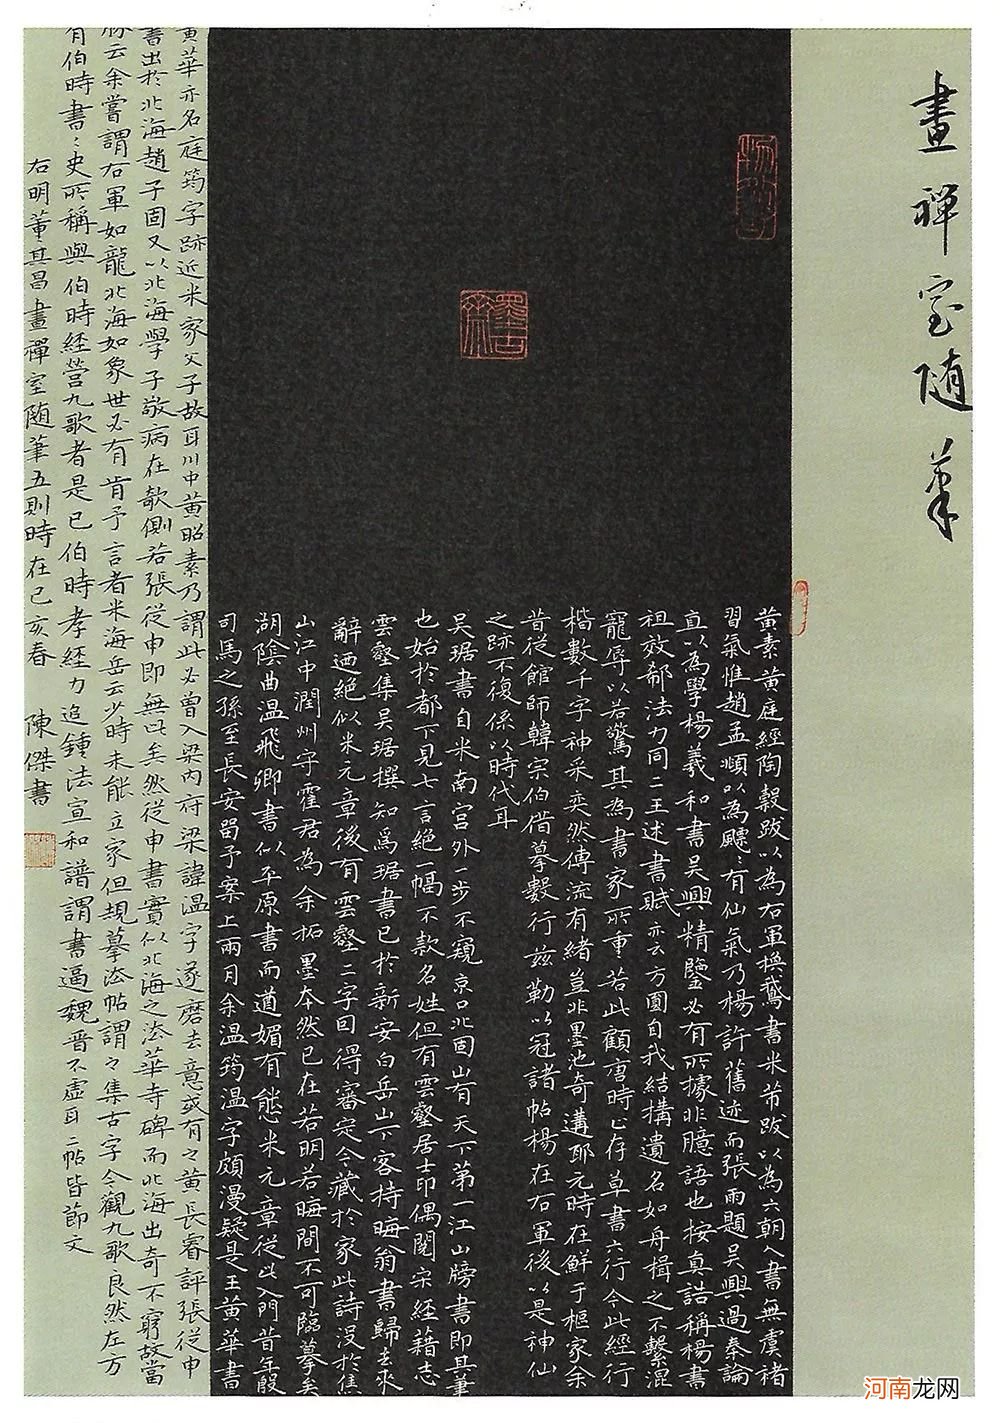 畫禪室随筆
黄素黄庭經陶穀跋以為右軍換鵞書米芾跋以為六朝人書無虞褚
習氣惟趙孟頫以為飄〻有仙氣乃楊許舊迹而張雨題吳興過秦論
直以為學楊羲和書吳興精鑒必有所據非臆語也按真誥稱楊書
祖效郗法力同二王述書賦亦云方圓自我結構遺名如舟楫之不繫混
寵辱以若驚其為書家所重若此顧唐時止存草書六行今此經行
楷數千字神采奕然傳流有緒豈非墨池奇遘耶元時在鮮于樞家余
昔從館師韓宗伯借摹數行茲勒以冠諸帖楊在右軍後以是神仙
之跡不復係以時代耳
吴琚書自米南宫外一步不窺京口北固山有天下第一江山牓書即其筆
也始於都下見七言絶一幅不款名姓但有雲壑居士印偶閲宋經藉志
雲壑集吴琚撰知爲琚書已於新安白岳山下客持晦翁書歸去來
辭迺絶似米元章後有雲壑二字回得審定今藏於家此詩没於焦
山江中潤州字霍君為余拓墨本然已在若明若晦間不可臨摹矣
湖陰曲温飛卿書似平原書而遒媚有態米元章從此入門昔年殷
司馬之孫至長安留予案上兩月余温筠温字頗漫疑是王黄華書
黄華亦名庭筠字跡近米家父子故耳川中黄昭素乃謂此必曾入梁内府梁諱温字遂磨去意或有之黄長睿評張從申
書出於北海趙子固又以北海學子敬病在欹側若張從申即無此矣然從申書實似北海之法華寺碑而北海出奇不窮故當
勝云余嘗謂右軍如龍北海如象世必有肯予言者米海岳云少時未能立家但規摹法帖謂之集古字今觀九歌良然左方
有伯時書〻史所稱與伯時經營九歌者是已伯時孝經力追鍾法宣和譜謂書逼魏晋不虛耳二帖皆節文
右明董其昌畫禪室随筆五則時在己亥春 陳傑書
河南龙网